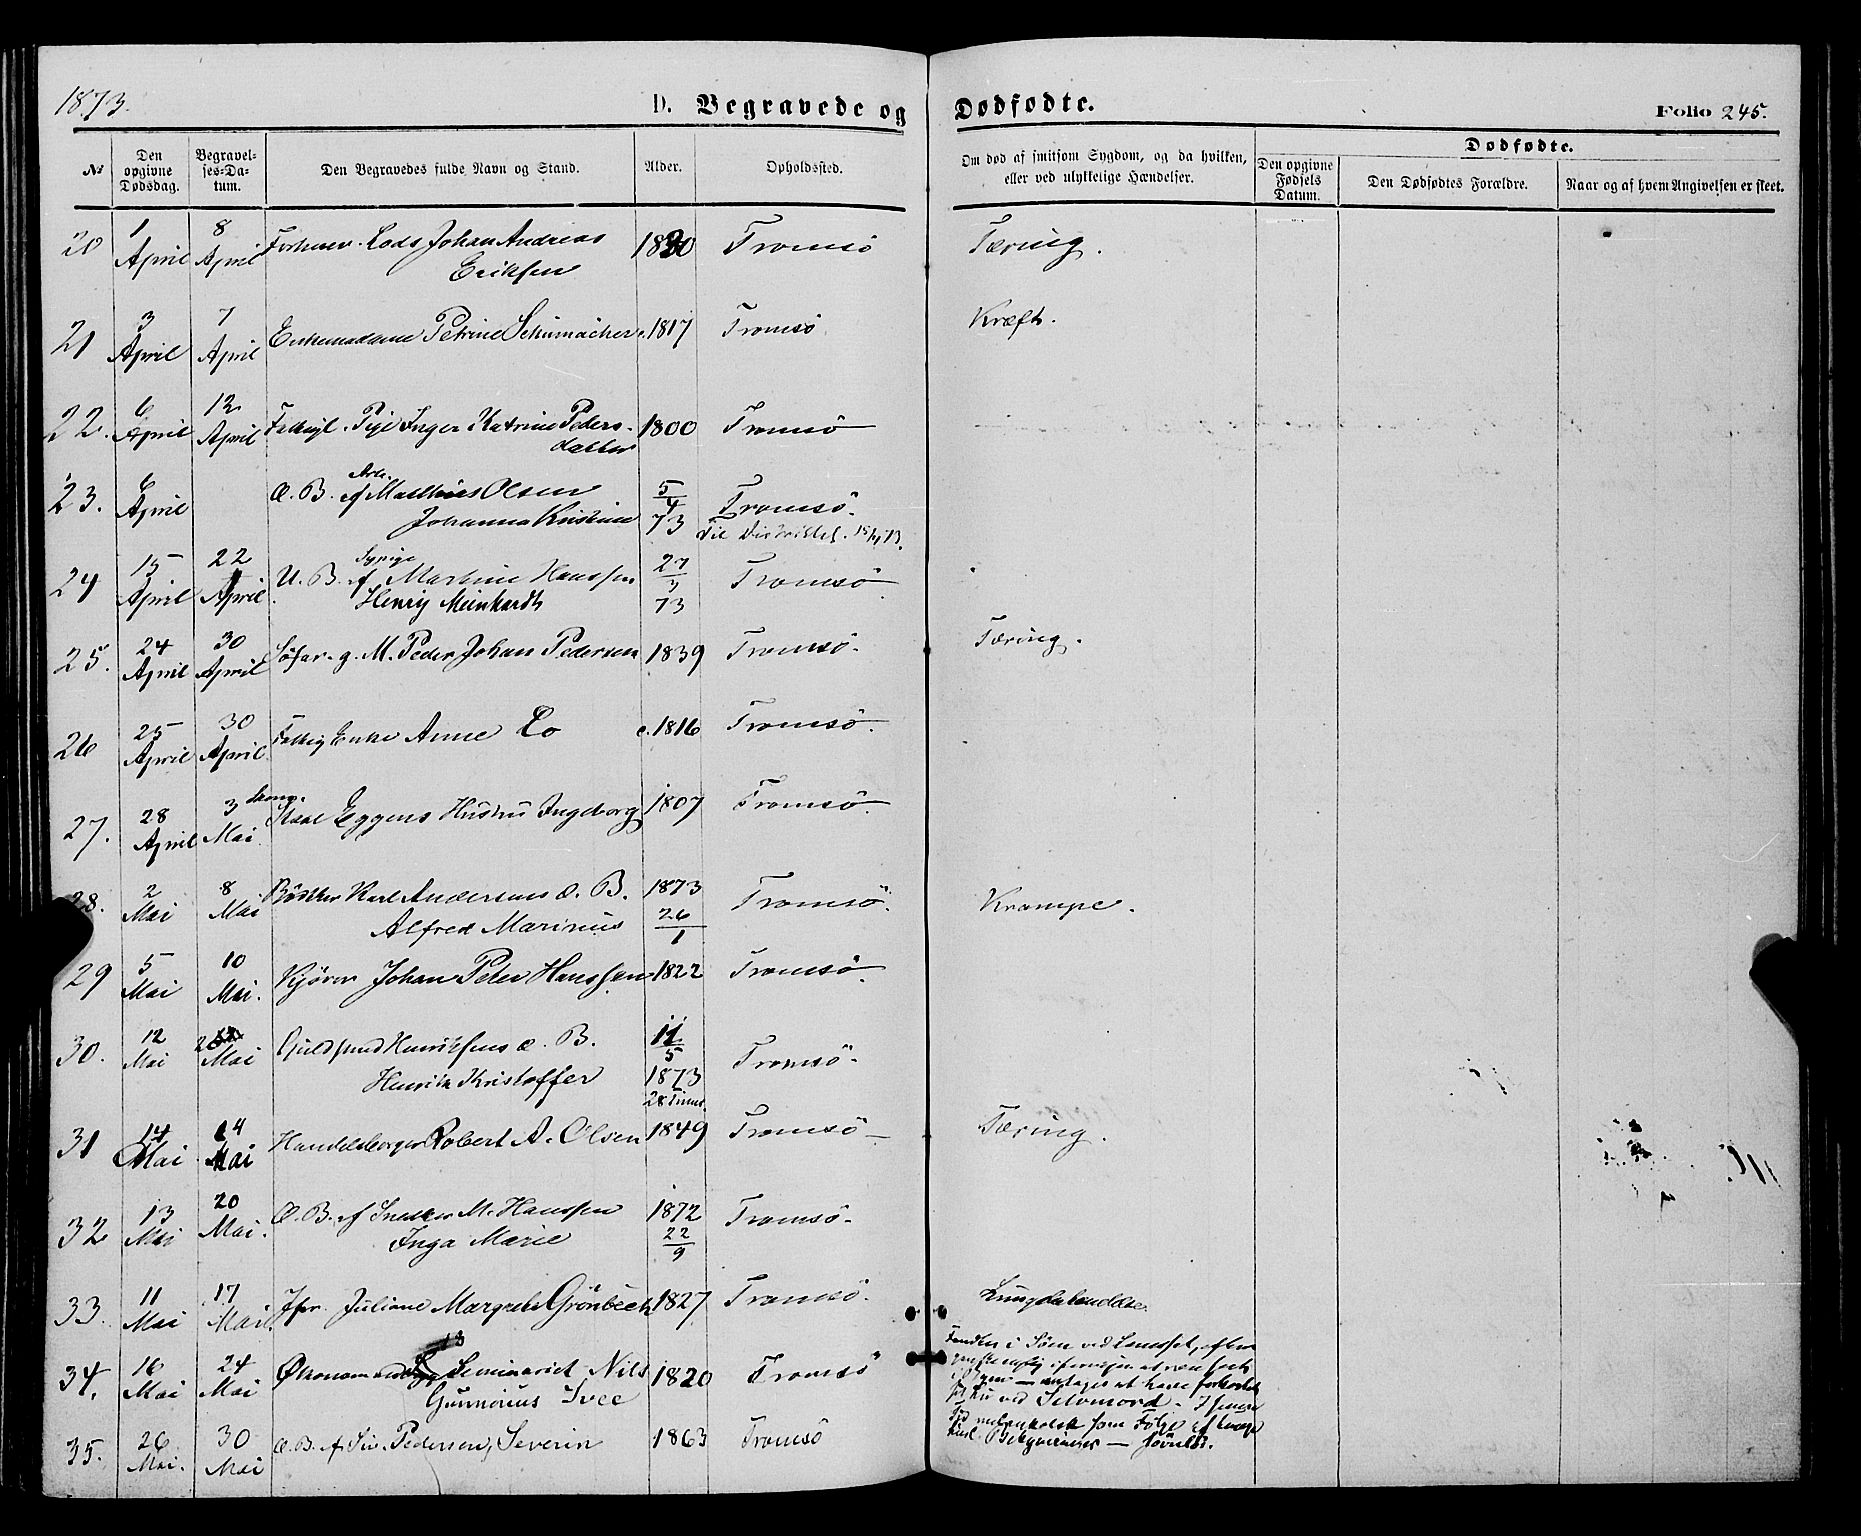 1873.
D. Begravede og Dødfødte.
Folio 245.
№
Den opgivne Dødsdag.
Begravelses-Datum.
Den Begravedes fulde Navn og Stand.
Alder.
Opholdssted.
Om død af smitsom Sygdom, og da hvilken, eller ved ulykkelige Hændelser.
Dødfødte.
Den opgivne Fødsels Datum.
Den Dødfødtes Forældre.
Naar og af hvem Angivelsen er skeet.
20 1 April 8 April Forhenv. Lods Johan Andreas Eriksen 1820 Tromsö Tæring.
21 3 April 7 April Enkemadame Petrine Schumacher c. 1817 Tromsö Kræft.
22. 6 April 12 April Fattigl. Pige Inger Katrine Pedersdatter 1800 Tromsö
23. 6 April Æ. B. af Arb. Mathias Olsen Johanna Kristine 5/4 73 Tromsö. Til Distriktet. 15/4 73.
24 15 April 22 April U. B. af Sypige Martine Hanssen Henrij Meinhardt 27/3 73 Tromsö
25. 24 April 30 April Söfar. g. M. Peder Johan Pedersen 1839 Tromsö. Tæring.
26 25 April 30 April Fattig Enke Anne Lo c. 1816 Tromsö.
27. 28 April 3 Mai Eggens Hustru Ingeborg 1807 Tromsö.
28. 2 Mai 8 Mai Bödker Karl Andersens Æ. B. Alfred Marinius 1873 26/1 Tromsö. Krampe.
29 5 Mai 10 Mai. Kjörer Johan Peter Hanssen 1822 Tromsö.
30. 12 Mai Mai Guldsmed Henriksens Æ. B. Henrik Kristoffer 11/5 1873 28 Timer. Tromsö.
31 14 Mai 24 Mai Handelsborger Robert A. Olsen 1849 Tromsö Tæring.
32 13 Mai 20 Mai. Æ. B. af Snedker M. Hanssen Inga Marie 1872 22/9 Tromsö.
33. 11 Mai 17 Mai. Jfr. Juliane Margrete Grönbeck 1827 Tromsö. Lungebetændelse.
34. 16 Mai 24 Mai Økonom ved Seminariet Nils Gunnerius Svee 1820 Tromsö
Funden i Söen ved
antages at have forkortet
sit Liv ved Selvmord.
melankolsk som Følge af
Bekymringer —
35. 26 Mai. 30 Mai Æ. B. af Pedersen, Severin 1863 Tromsö